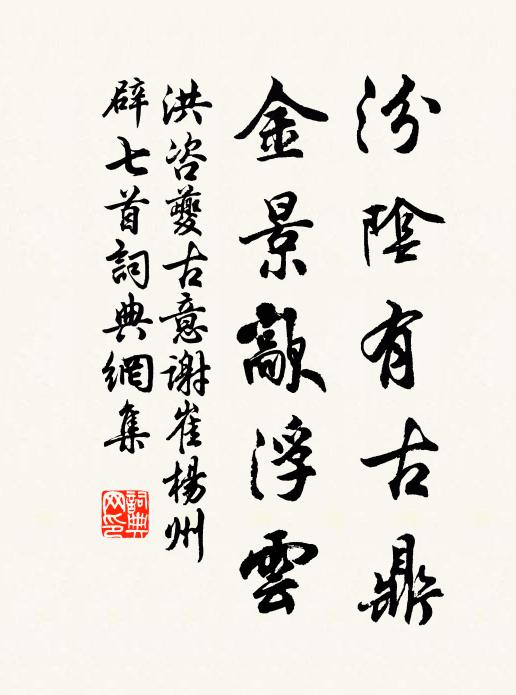 汾陰有古鼎
金景歊浮雲
洪咨夔古意謝崔楊州
辟七首詞典網集
詞典網印